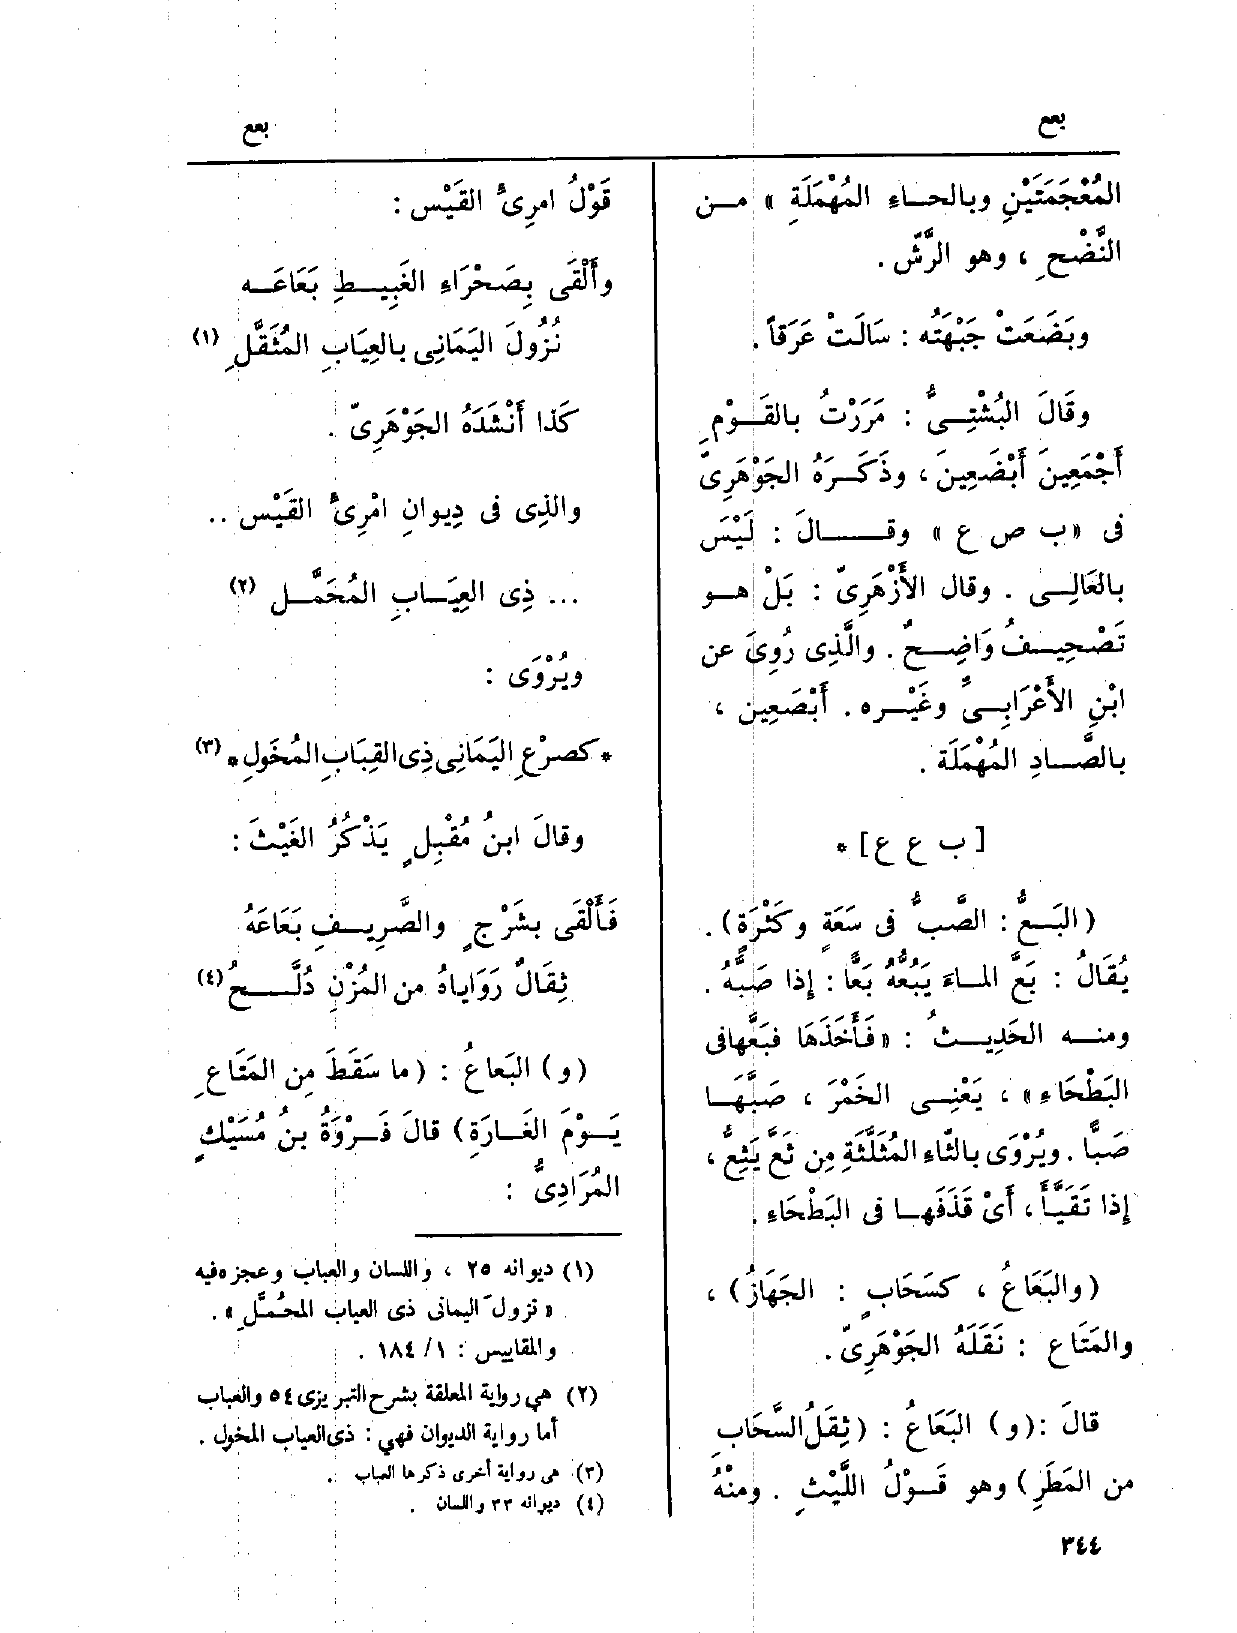 بعع
بعع
المُعْجَمَتَيْنِ وبالحاءِ المُهْمَلَةِ » من
النَّضْحِ ، وهو الرَّشّ .
وبَضَعَتْ جَبْهَتُه : سَالَتْ عَرَقاً .
وقَالَ البُشْتِىُّ : مَرَرْتُ بالقَوْمِ
أَجْمَعِينَ أَبْضَعِينَ ، وذَكَرَهُ الجَوْهَرِىّ
فى «ب ص ع» وقالَ : لَيْسَ
بالعَالِى . وقال الأَزْهَرِىّ : بَلْ هو
تَصْحِيفٌ وَاضِحٌ . والَّذِى رُوِىَ عن
ابْنِ الأَعْرَابِىِّ وغَيْرِه . أَبْصَعِين ،
بالصَّادِ المُهْمَلَة .
[ ب ع ع ] *
(البَعُّ : الصَّبُّ فى سَعَةٍ وكَثْرَةٍ) .
يُقَالُ : بَعَّ الماءَ يَبُعُّهُ بَعًّا : إِذا صَبَّهُ .
ومنه الحَدِيثُ : «فَأَخَذَهَا فبَعَّهافى
البَطْحَاءِ» ، يَعْنِى الخَمْرَ ، صَبَّهَا
صَبًّا . ويُرْوَى بالثّاءِ المُثَلَّثَةِ مِن ثَعَّ يَثِعُّ ،
إِذا تَقَيَّأَ ، أَىْ قَذَفَها فى البَطْحَاءِ .
(والبَعَاعُ ، كسَحَابٍ : الجَهَازُ) ،
والمَتَاع : نَقَلَهُ الجَوْهَرِىّ .
قالَ : (و) البَعَاعُ : (ثِقَلُ السَّحَابِ
من المَطَرِ) وهو قَوْلُ اللَّيْثِ . ومنْهُ
قَوْلُ امرِئ القَيْس :
وأَلْقَى بِصَحْرَاءِ الغَبِيطِ بَعَاعَه
نُزُولَ اليَمَانِى بالعِيَابِ المُثَقَّلِ (١)
كَذا أَنْشَدَهُ الجَوْهَرِىّ .
والذِى فى دِيوانِ امْرِئ القَيْس ..
... ذِى العِيَابِ المُحَمَّل (٢)
ويُرْوَى :
* كصرْعِ اليَمَانِى ذِى القِبَابِ المُخَولِ * (٣)
وقالَ ابنُ مُقْبِلٍ يَذْكُرُ الغَيْثَ :
فَأَلْقَى بشَرْجٍ والصَّرِيفِ بَعَاعَهُ
ثِقَالٌ رَوَاياهُ من المُزْنِ دُلَّحُ (٤)
(و) البَعاعُ : (ما سَقَطَ مِن المَتَاعِ
يَوْمَ الغَارَةِ) قالَ فَرْوَةُ بنُ مُسَيْكٍ
المُرَادِىُّ :
(١) ديوانه ٢٥ ، واللسان والعباب وعجزه فيه
« نزولَ اليمانى ذى العياب المحُمَّلِ » .
والمقاييس : ١/ ١٨٤ .
(٢) هي رواية المعلقة بشرح التبريزى ٥٤ والعباب
أما رواية الديوان فهي : ذى العياب المخول .
(٣) هى رواية أخرى ذكرها العباب .
(٤) ديوانه ٣٣ واللسان .
٣٤٤